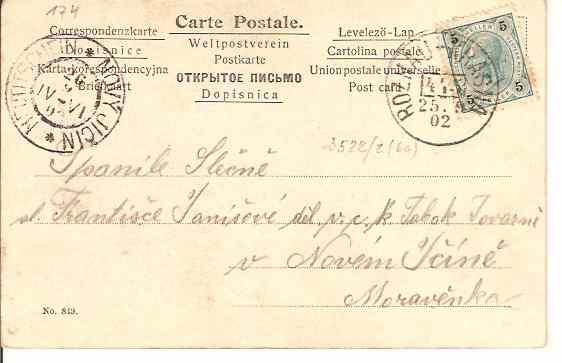 174
Carte Postale.
Correspondenzkarte
Dopisnice
Karta korespondencyjna
Briefkaart
Weltpostverein
Postkarte
ОТКРЫТОЕ ПИСЬМО
Dopisnica
Levelező-Lap
Cartolina postale
Union postale universelle
Post card
5 5
5 5
NEUTITSCHEIN * NOVÝ JIČÍN *
25.
02
3522/2 (60)
Spanilé Slečně
sl. Frantisče Janišové děl. v. c. k. Tabak Továrně
v Novém Ičíně
Moravěnka
No. 849.